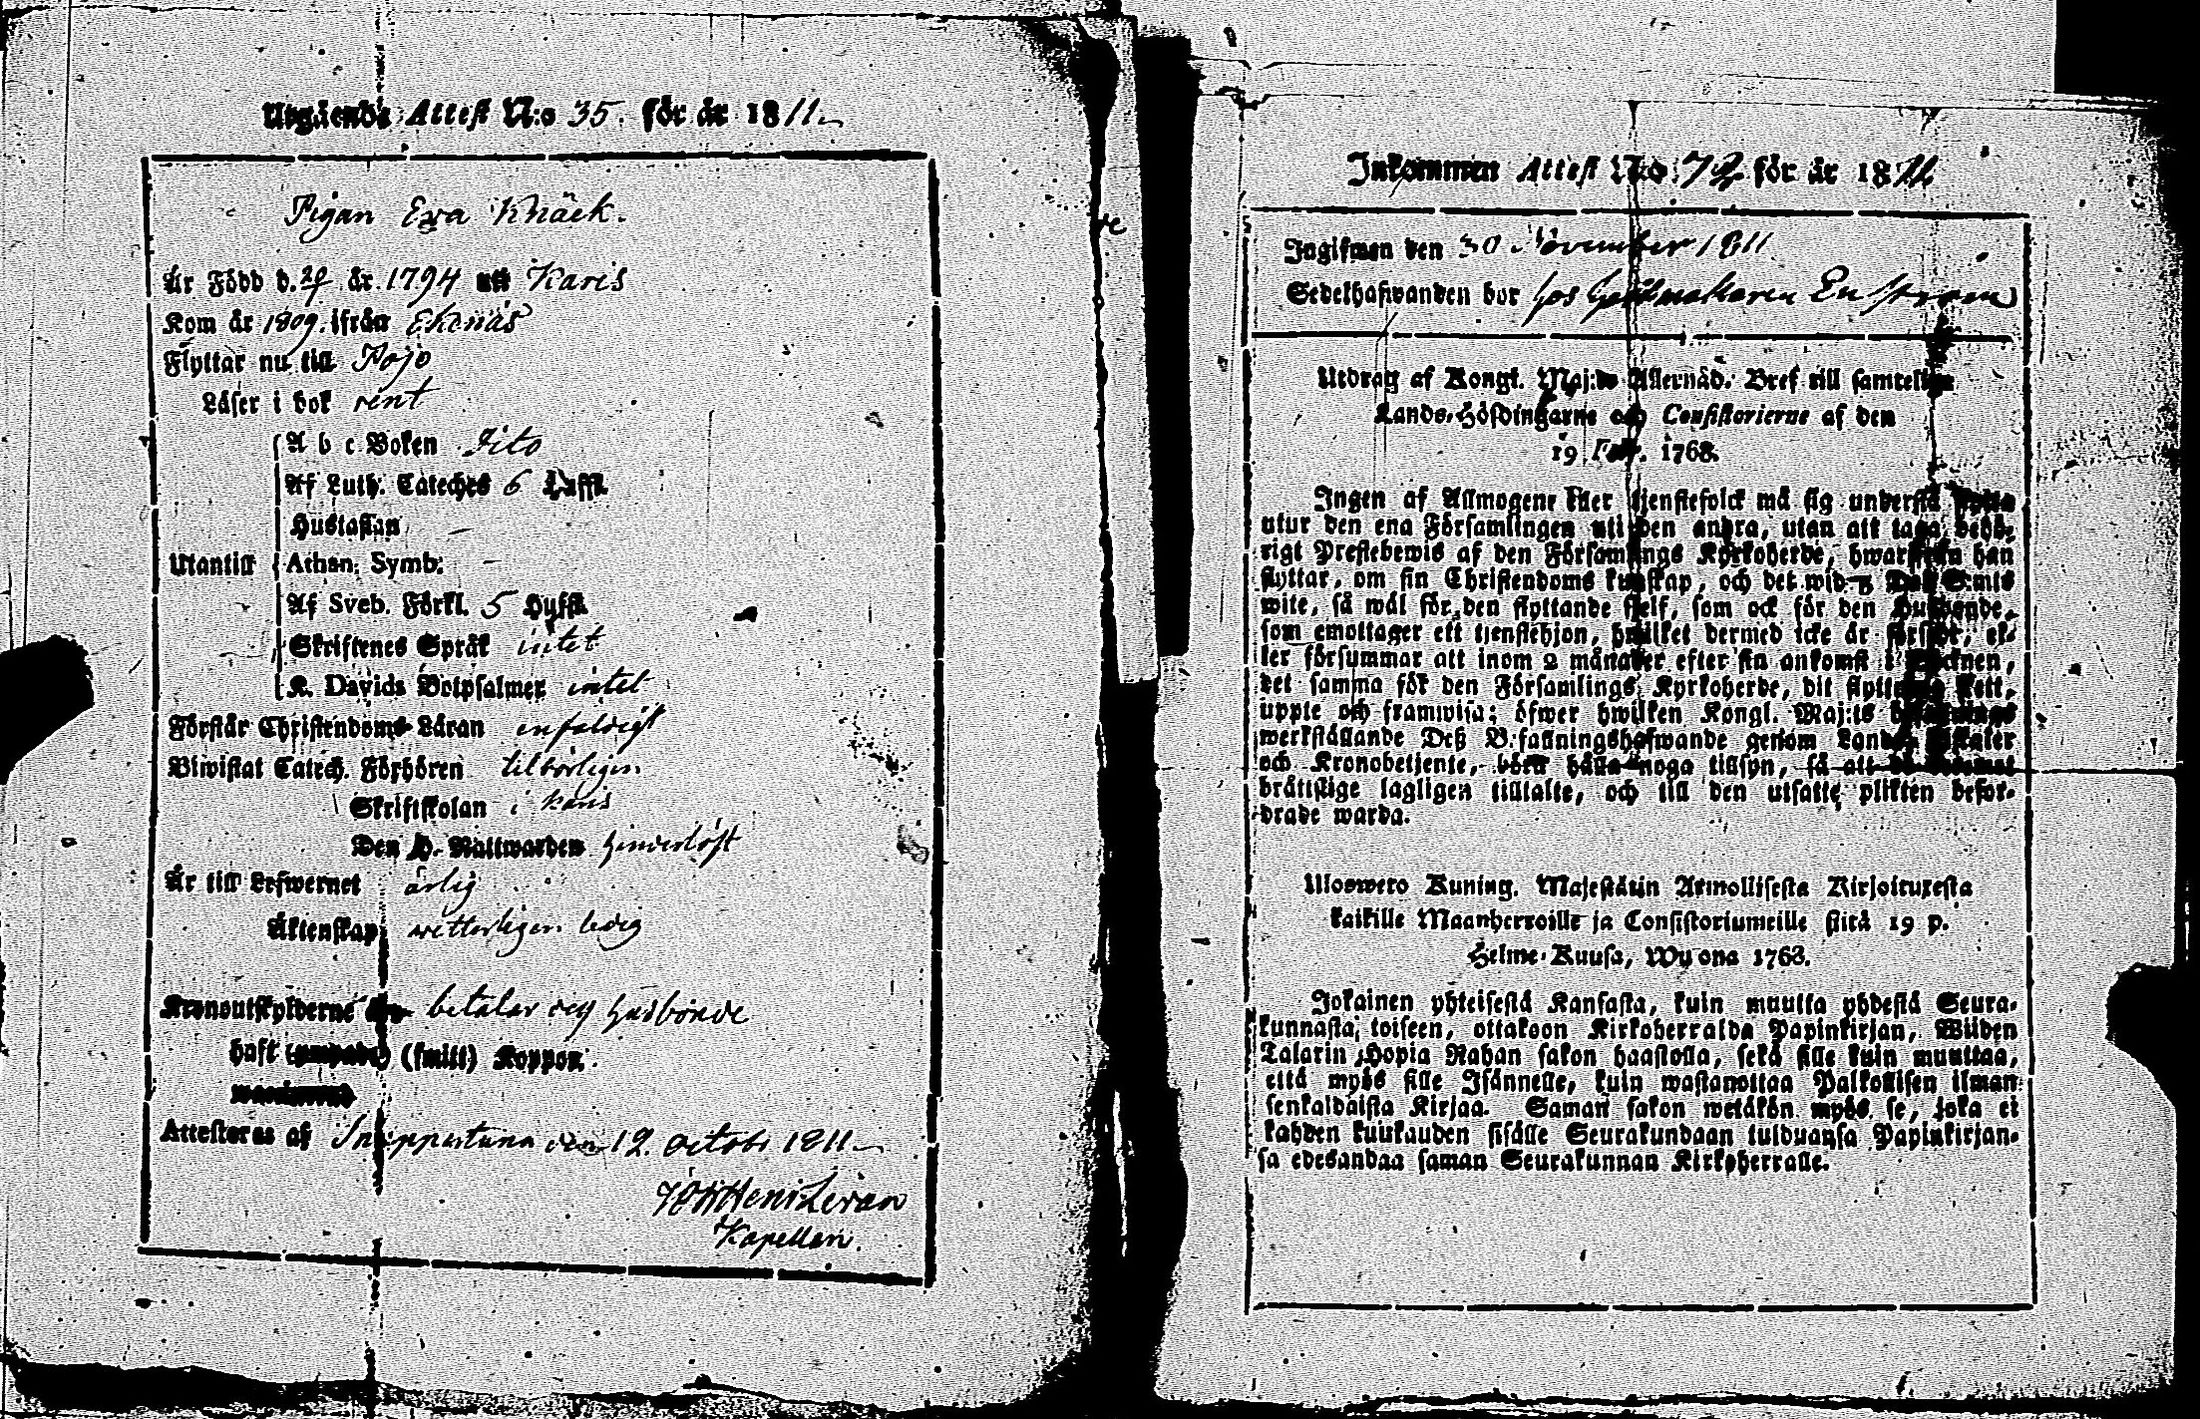 Utgående Attest N:o 35. för år 1811
Pigan Eva Knäck.
Är Född d. år 1794 uti Karis
Kom år 1809. ifrån Ekenäs
Flyttar nu till Pojo
Läser i bok rent
A b c Boken Dito
Af Luth. Cateches 6
Hustaflan –
Utantill Athan: Symb: –
Af Sveb. Förkl. 5
Skriftenes Språk intet
K. Davids Botpsalmer intet
Förstår Christendoms Läran enfaldigt
Biwistat Catech. Förhören tilbörligen
Skriftskolan i Karis
Den H. Nattwarden hinderlöst
Är till Lefwernet ärlig
Äktenskap wetterligen ledig
Kronoutskylderne betalar Husbonde
haft (smitt) Koppor.
Attesteras af Snappertuna den 12. octobr 1811
Kapellan.
Inkommen Attest N:o 72 för år 1811
Ingifwen den 30 November 1811
Sedelhafwanden bor hos Enström
Utdrag af Kongl. Maj:ts Allernåd. Bref till samtelige
Lands-Höfdingarne och Consistorierne af den
19 Febr. 1768.
Ingen af Allmogene eller tjenstefolck må sig understå flytta
utur den ena Församlingen uti den andra, utan att taga behö-
rigt Prestebewis af den Församlings Kyrkoherde, hwarifrån han
flyttar, om sin Christendoms kunskap, och det wid Dal. S:mts
wite, så wäl för den flyttande sielf, som ock för den Husbonde,
som emottager ett tjenstehjon, hwilket dermed icke är försedt, el-
ler försummar att inom 2 månader efter sin ankomst i Socknen,
det samma för den Församlings Kyrkoherde, dit flyttning skett,
uppte och framwisa; öfwer hwilken Kongl. Maj:ts befallnings
werkställande Deß B.fallningshafwande genom Lands Fiskaler
och Kronobetjente, böra hålla noga tillsyn, så att
bråttslige lagligen tilltalte, och till den utsatte plikten befor-
drade warda.
Uloswero Kuning. Majestätin Armollisesta Kirjoituxesta
kaikille Maanherroille ja Consistoriumeille siitä 19 p.
Helme-Kuusa, Wuonna 1768.
Jokainen yhteisestä Kansasta, kuin muutta yhdestä Seura-
kunnasta, toiseen, ottakoon Kirkoherralda Papinkirjan, Wiiden
Talarin Hopia Rahan sakon haastolla, sekä sille kuin muuttaa,
että myös sille Isännelle, kuin wastanottaa Palkollisen ilman
senkaldaista Kirjaa. Saman sakon wetäkön myös se, joka ei
kahden kuukauden sisälle Seurakundaan tulduansa Papinkirjan-
sa edesandaa saman Seurakunnan Kirkoherralle.